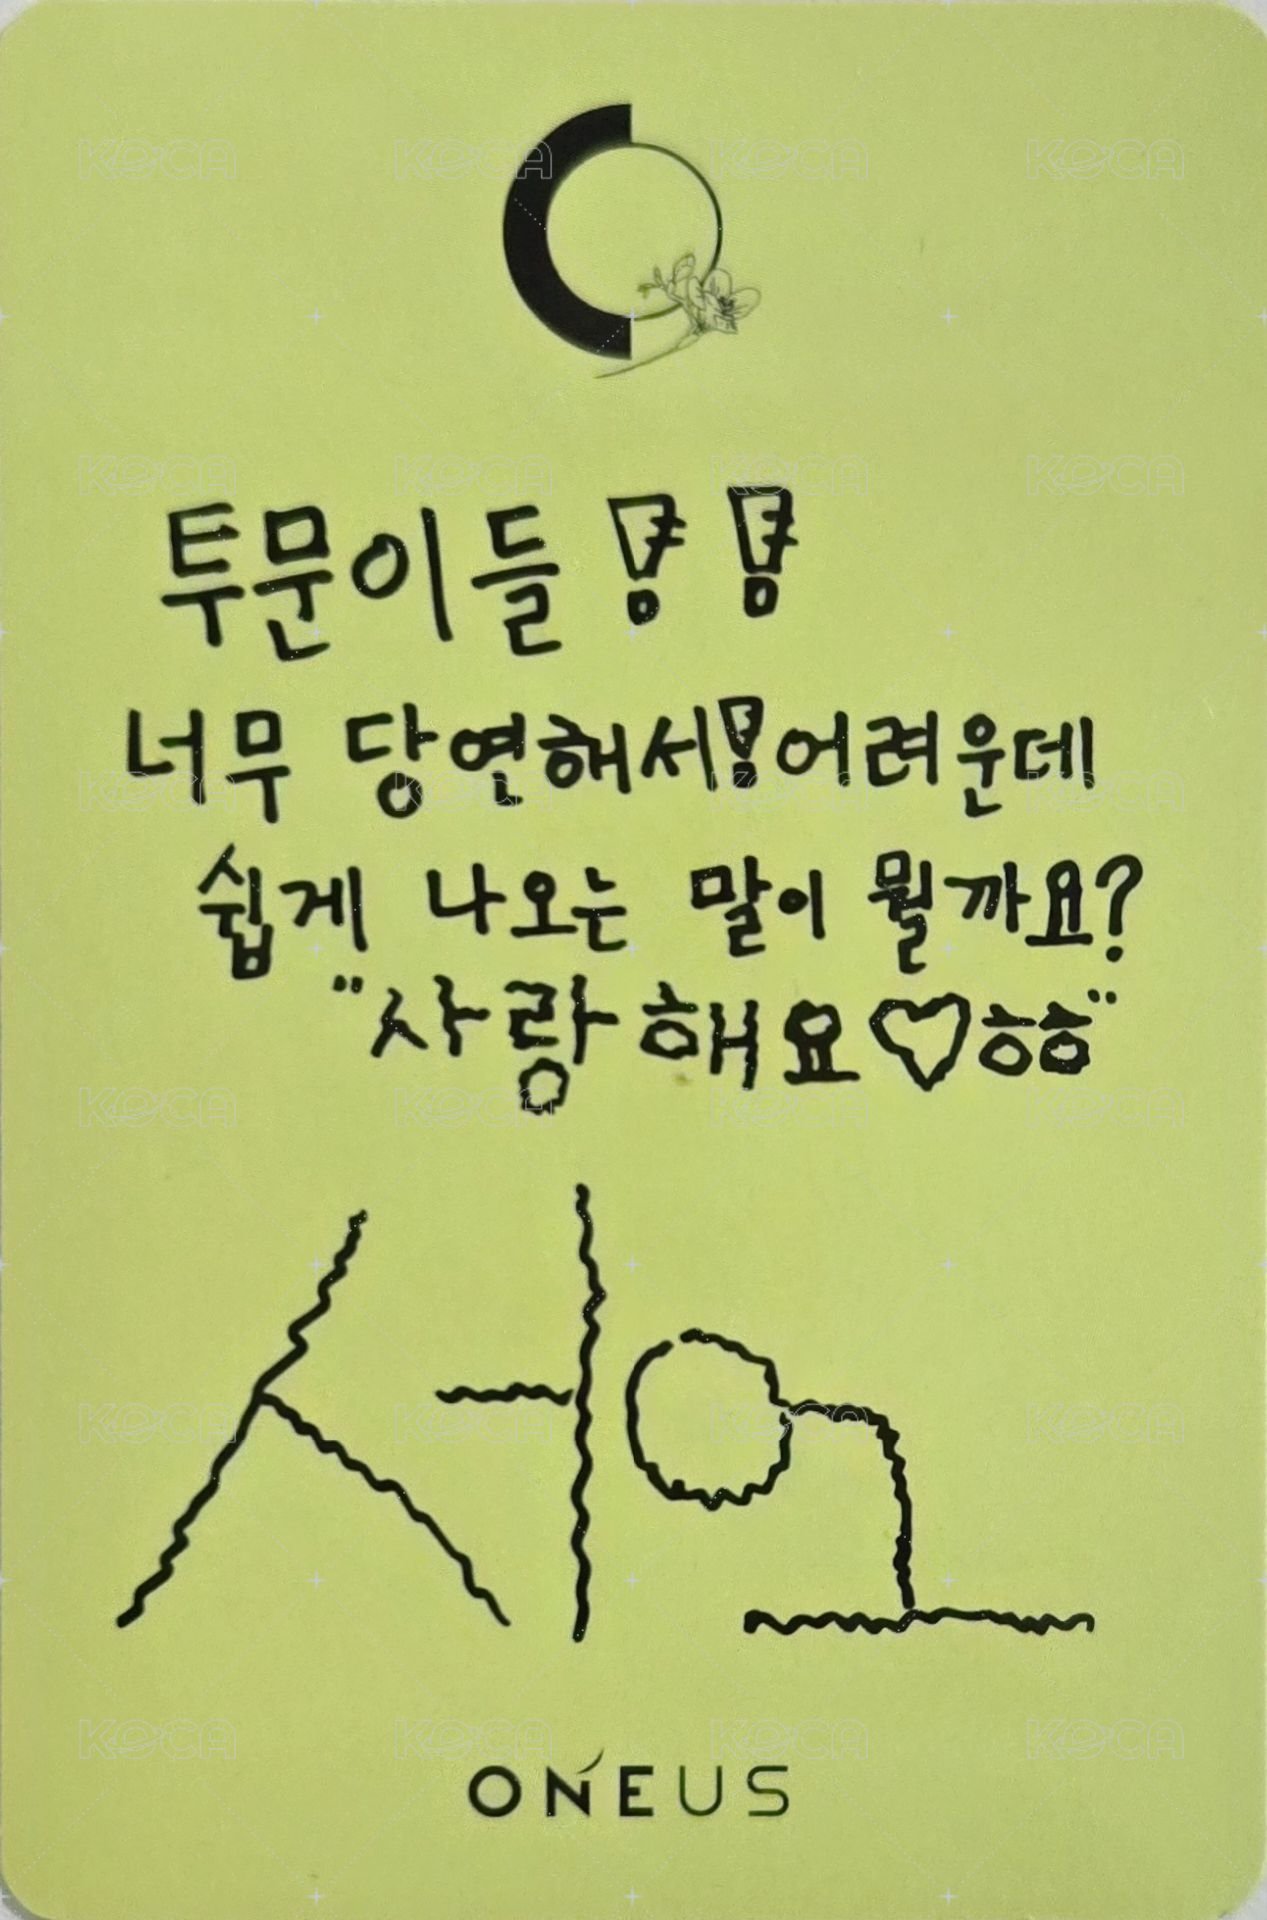 투문이들!!
너무 당연해서! 어려운데
쉽게 나오는 말이 뭘까요?
"사랑해요♡ㅎㅎ"
서호
ONEUS
KOCA